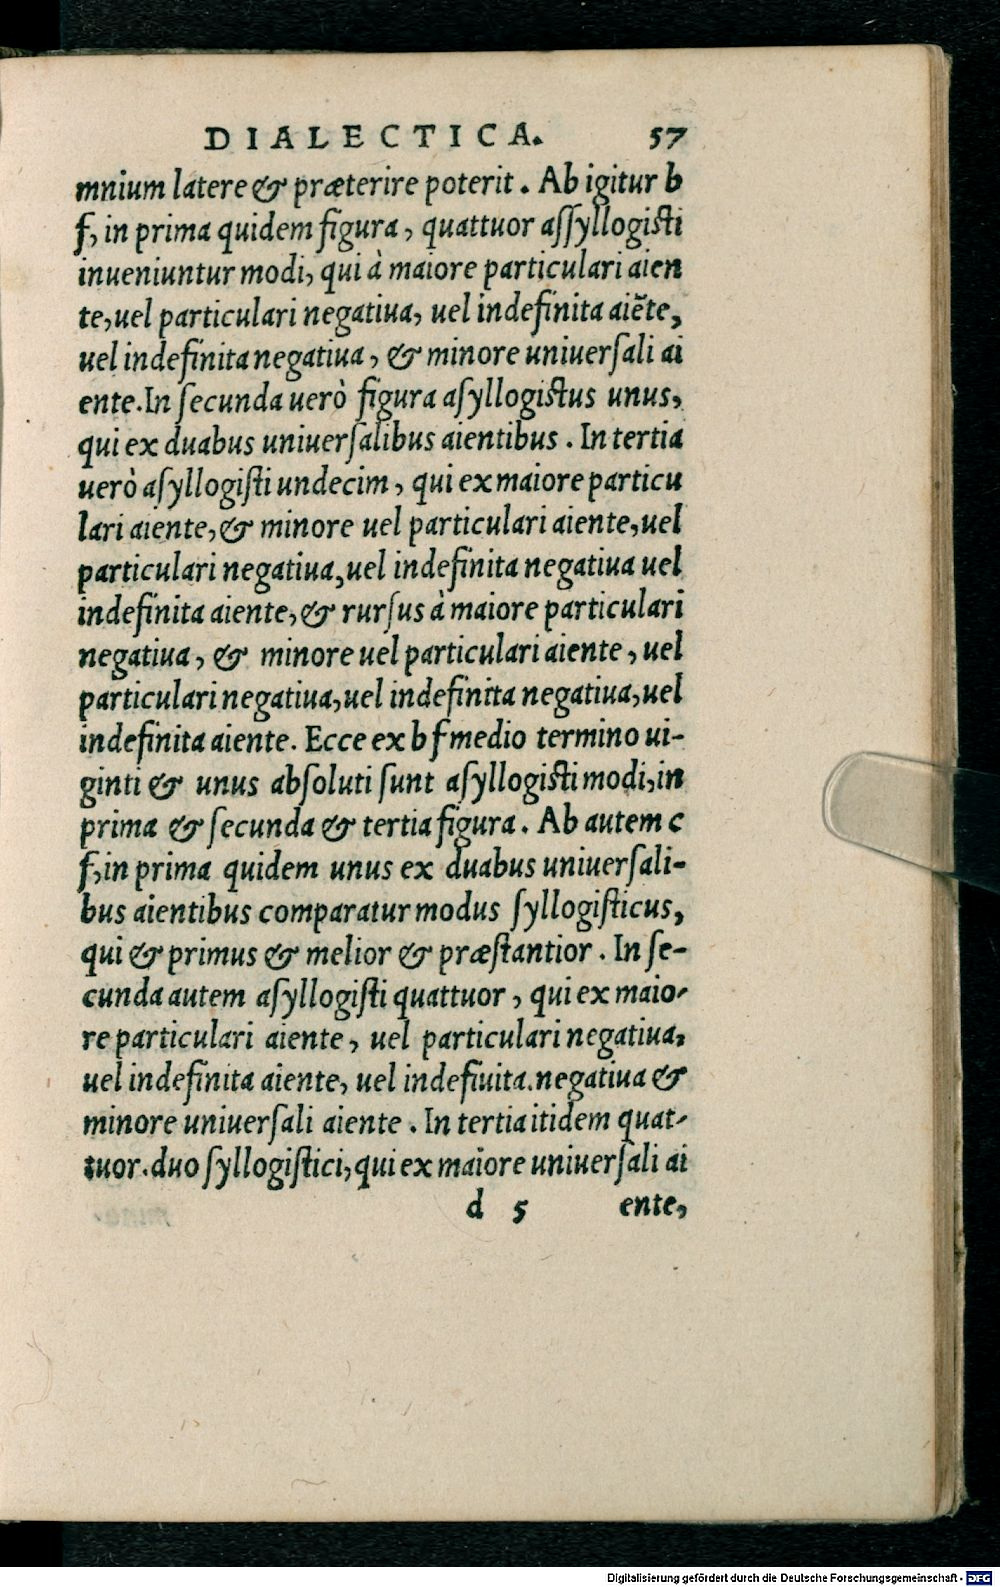 DIALECTICA. 57
mnium latere & præterire poterit. Ab igitur b
f, in prima quidem figura, quattuor aſſyllogiſti
inueniuntur modi, qui à maiore particulari aien
te, uel particulari negatiua, uel indefinita aiēte,
uel indefinita negatiua, & minore uniuerſali ai
ente. In ſecunda uerò figura aſyllogiſtus unus,
qui ex duabus uniuerſalibus aientibus. In tertia
uerò aſyllogiſti undecim, qui ex maiore particu
lari aiente, & minore uel particulari aiente, uel
particulari negatiua, uel indefinita negatiua uel
indefinita aiente, & rurſus à maiore particulari
negatiua, & minore uel particulari aiente, uel
particulari negatiua, uel indefinita negatiua, uel
indefinita aiente. Ecce ex b f medio termino ui-
ginti & unus abſoluti ſunt aſyllogiſti modi, in
prima & ſecunda & tertia figura. Ab autem c
f, in prima quidem unus ex duabus uniuerſali-
bus aientibus comparatur modus ſyllogiſticus,
qui & primus & melior & præſtantior. In ſe-
cunda autem aſyllogiſti quattuor, qui ex maio-
re particulari aiente, uel particulari negatiua,
uel indefinita aiente, uel indefiuita. negatiua &
minore uniuerſali aiente. In tertia itidem quat-
tuor. duo ſyllogiſtici, qui ex maiore uniuerſali ai
d 5 ente,
Digitalisierung gefördert durch die Deutsche Forschungsgemeinschaft - DFG